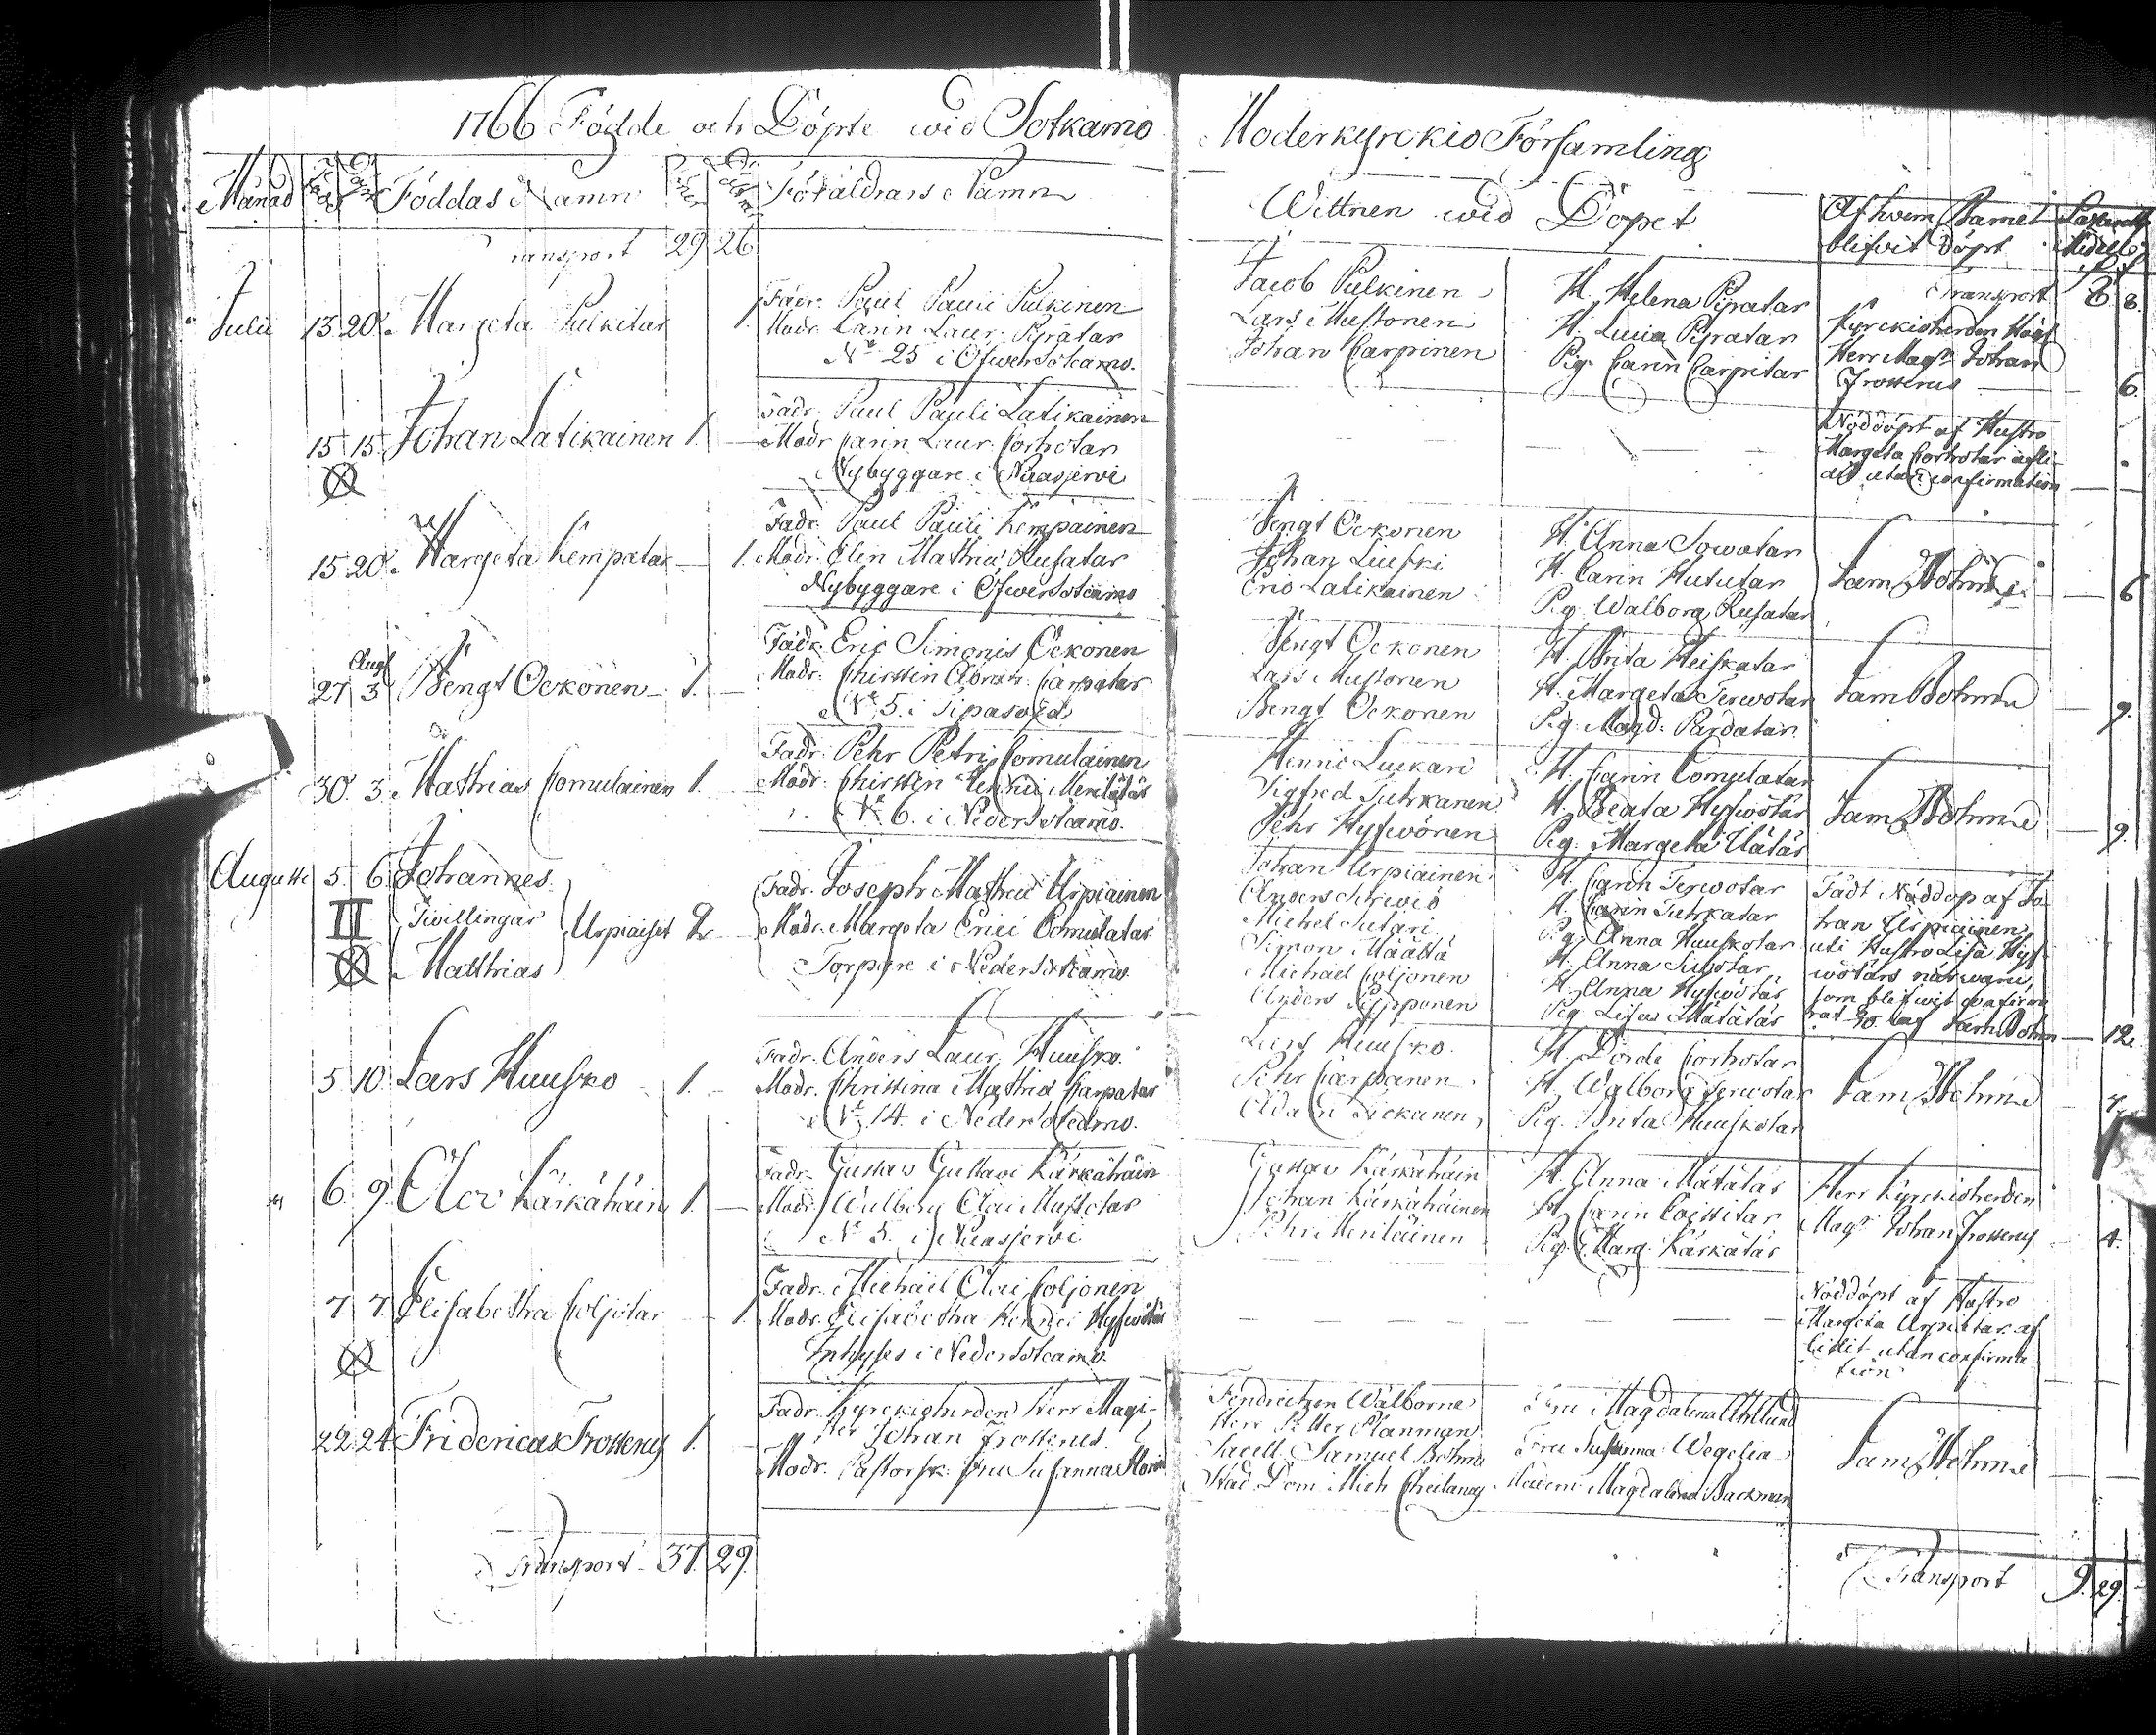 1766 Födde och Döpte wid Sotkamo Moderkyrckio Församling
Månad Föddas Namn Föräldrars Namn
Wittnen wid Döpet Af hwem Barnet
blifvit döpt
Transport 29 26
Transport 8. 8.
Julii 13 20. Margeta Pulkitar 1.
Fadr. Paul Pauli Pulkinen
Modr. Carin Laur. Pipatar
No 25 i Öfwersotcamo.
Jacob Pulkinen
Lars Mustonen
Johan Carpinen
H. Helena Pipatar
H. Lucia Pipatar
Pig. Carin Carpitar
Kyrckioherden
Herr Magr Johan
Frosterus 6.
15 15. Johan Latikainen 1.
Fadr. Paul Pauli Latikainen
Modr Carin Laur. Corhotar
Nybyggare i Nuasjerwi
Nöddöpt af Hustro
Margeta Corhotar afli-
dit utan confirmation
15 20. Margeta Kempatar 1.
Fadr. Paul Pauli Kempainen
Modr. Elin Mathiæ Rusatar
Nybyggare i Öfwersotcamo
Bengt Ockonen
Johan Liuski
Eric Latikainen
H. Anna Sowatar
H. Carin Hututar
Pig. Walborg Rusatar
Sam Bohm 6
Aug
27 3 Bengt Ockonen 1.
Fadr. Eric Simonis Ockonen
Modr. Christin Abrah. Carpatar
No 5. i Sipaswed
Bengt Ockonen
Lars Mustonen
Bengt Ockonen
H. Brita Heiskatar
H. Margeta Terwotar
Pig. Magd. Pardatar
Sam Bohm 9.
30. 3. Mathias Comulainen 1.
Fadr. Pehr Petri Comulainen
Modr. Christin Henrici Merilätär
No 6. i Nedersotcamo.
Henric Luckari
Sigfred Tuhkanen
Pehr Hyfwönen
H. Carin Comulatar
H. Beata Hyfwötär
Pig. Margeta Mätäs
Sam Bohm 9.
Augusti 5. 6. Johannes
II Twillingar Urpiaiset 2
Matthias
Fadr. Joseph Mathiæ Urpiainen
Modr. Margeta Erici Comulatar
Torpare i Nedersotkamo
Johan Urpiainen
Anders
Michel
Simon Määttä
Michael Coljonen
Anders Kipponen
H. Carin Terwotar
H. Carin Tuhkatar
Pig. Anna Huuskotar
H. Anna
H. Anna Hyfwötär
Pig. Lisa Mätätäs
Födt Nöddöp af Jo
han Urpiainen
uti Hustro Lisa Hyf
wötärs närwaro,
som blifwit confirme
rat Sam Bohm 12.
5 10. Lars Huusko 1.
Fadr. Anders Laur. Huusko.
Modr. Christina Mathiæ Carpatar
No 14. i Nedersotcamo.
Lars Huusko.
Pehr Carpanen
Adam Tickanen
H. Dorde Corhotar
H. Walborg Terwotar
Pig. Brita Huuskotar
Sam Bohm 7.
6. 9. Olov Kärkähäin 1.
Fadr. Gustav Gustavi Kärkähäin
Modr. Walborg Olai Mustotar
No 5. i Nuasjerwi
Gustav Kärkähäin
Johan Kärkähäinen
Pehr Meriläinen
H. Anna Mätätäs
H. Carin
Pig. Marg. Kärkätär
Herr Kyrckioherden
Magr Johan Frosterus 4.
7. 7. Elisabetha Coljotar 1.
Fadr. Michael Olai Coljonen
Modr. Elisabetha Henrici Hyfwötär
Inhyses i Nedersotcamo.
Nöddöpt af Hustro
Margeta Urpiatar af
lidit utan confirma
tion
22 24 Fridericus Frosterus 1.
Fadr. Kyrckioherden Herr Magi-
ster Johan Frosterus.
Modr. Pastorsk. Fru Susanna
Fendricken
Herr Petter Planman
Sacell. Samuel Bohm
Stud. Dom. Mich Cheilaneus
Fru Magdalena Ahlund
Fru Susanna Wegelia
Magdalena Backman
Sam Bohm
Transport 37. 29.
Transport 9. 29.